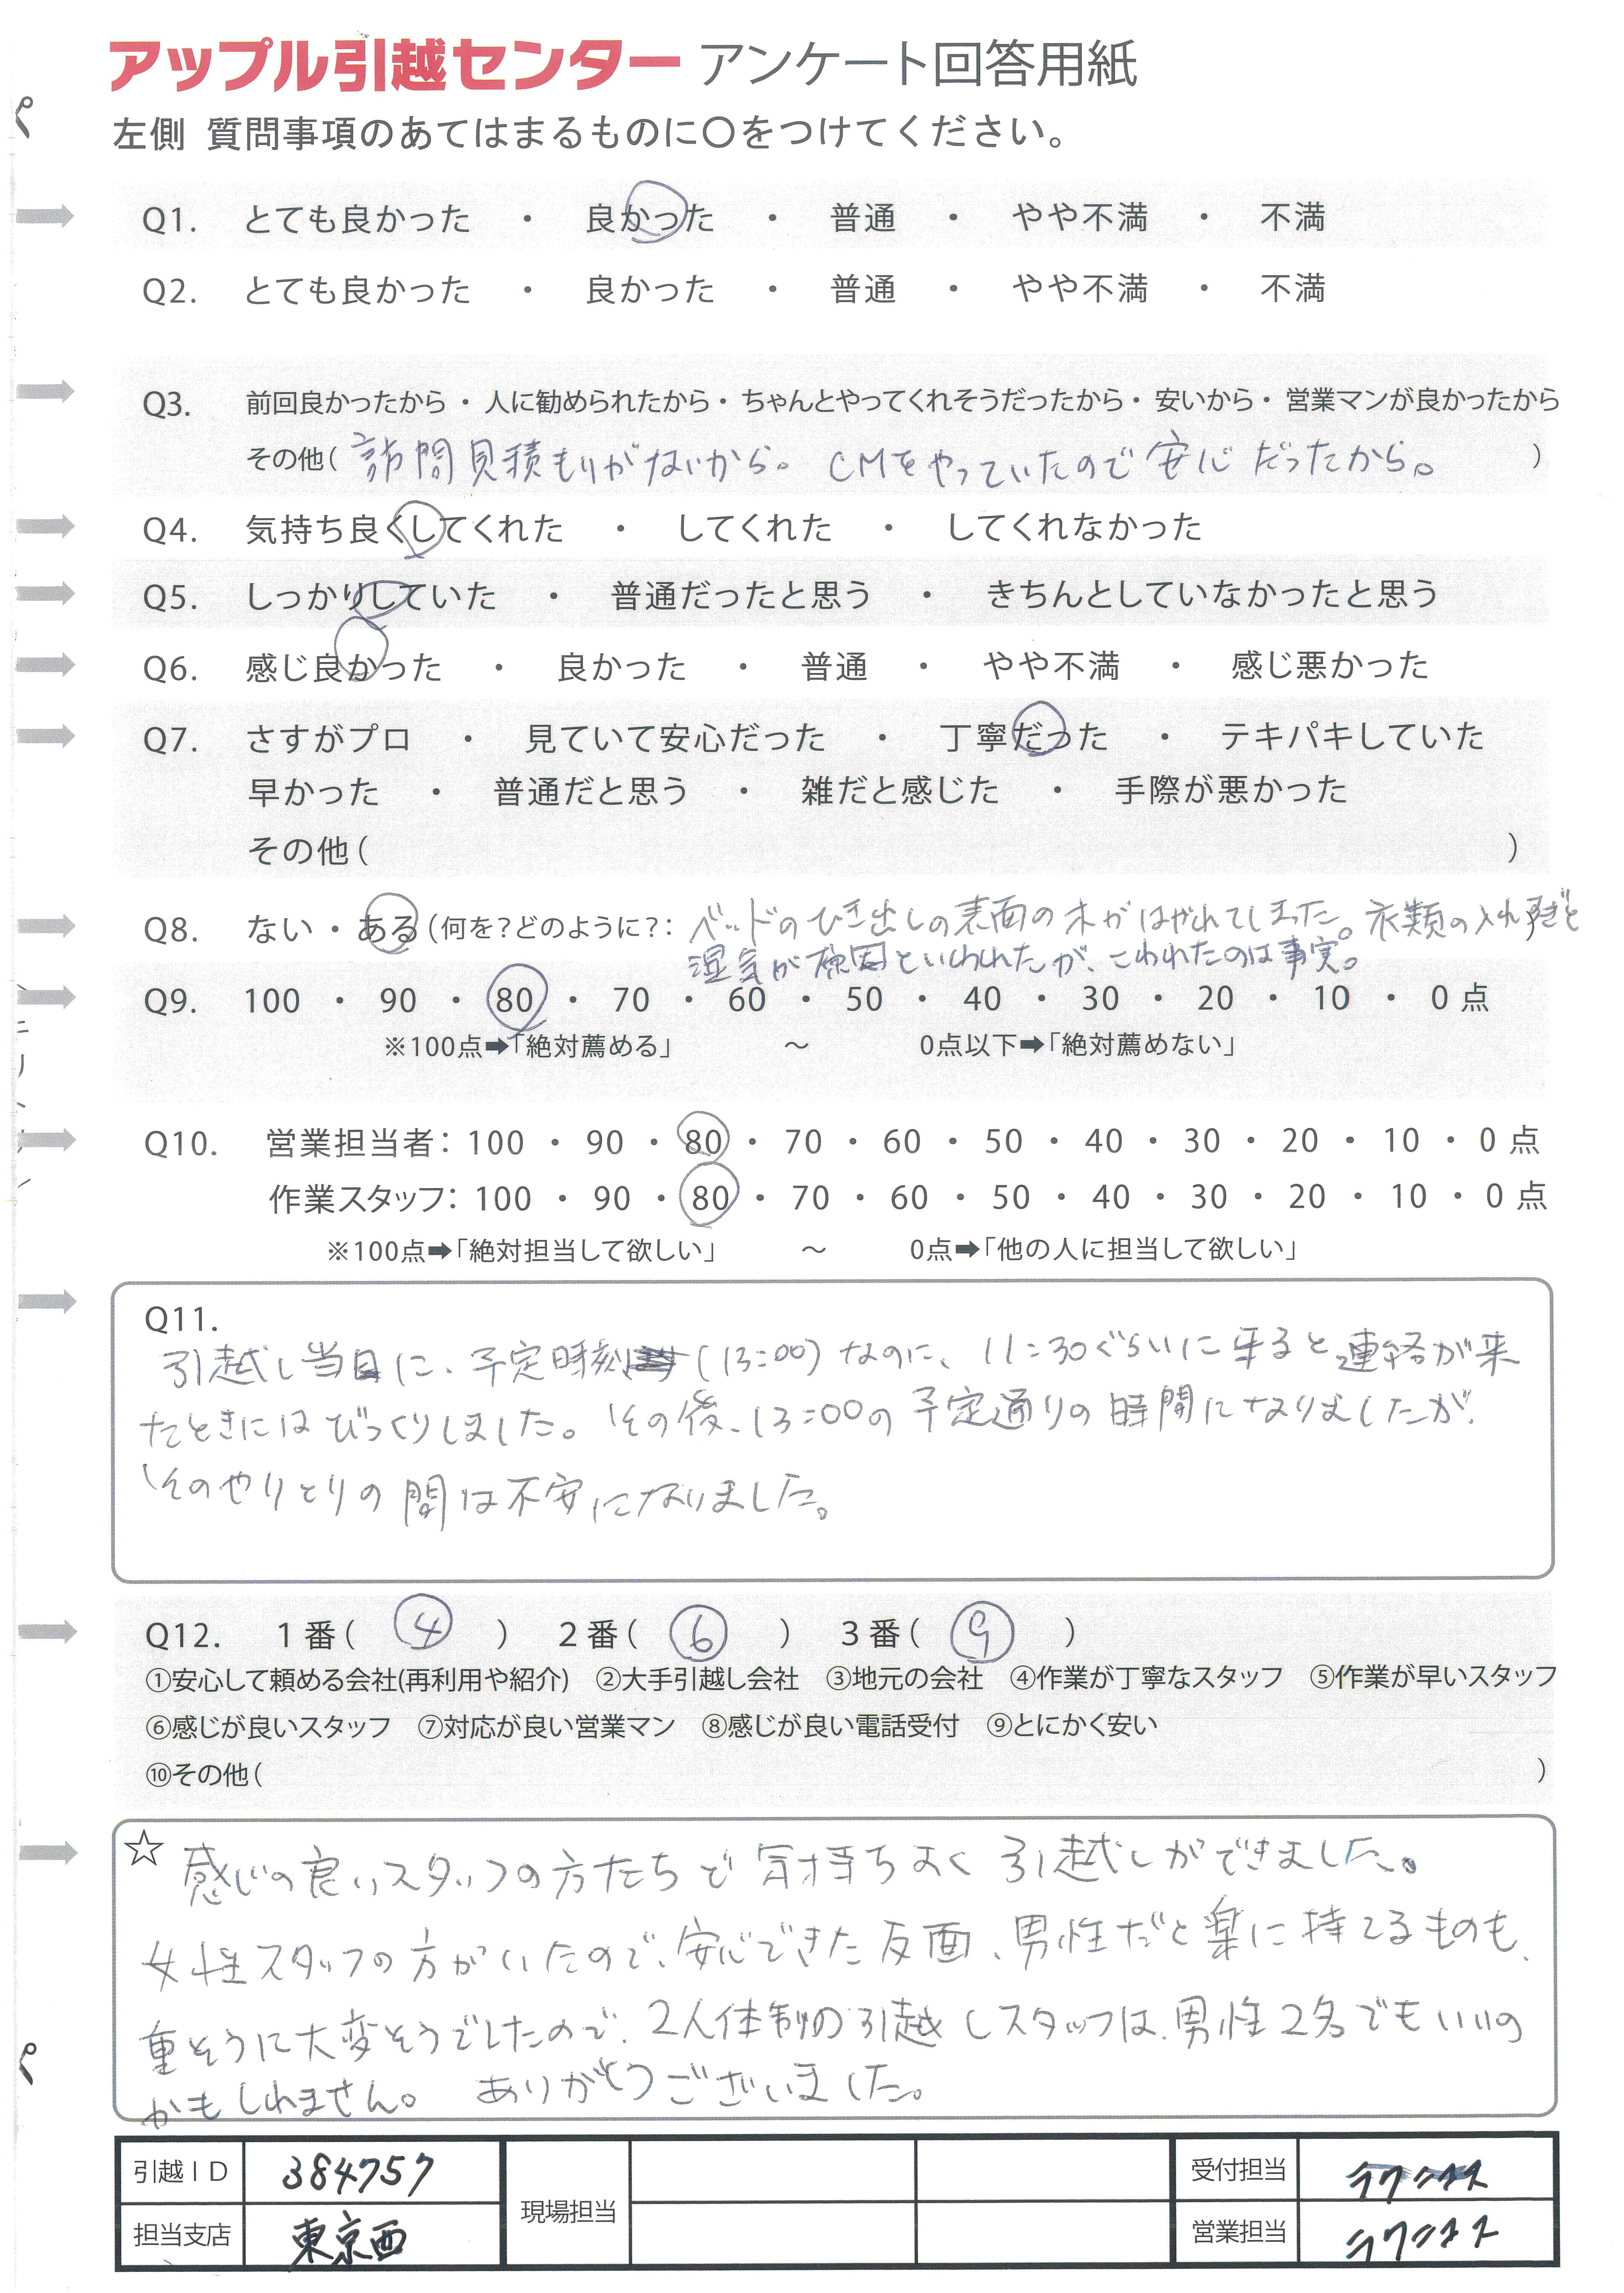 アップル引越センター アンケート回答用紙
左側 質問事項のあてはまるものに〇をつけてください。
Q1. とても良かった ・ 良かった ・ 普通 ・ やや不満 ・ 不満
Q2. とても良かった ・ 良かった ・ 普通 ・ やや不満 ・ 不満
Q3. 前回良かったから ・ 人に勧められたから ・ ちゃんとやってくれそうだったから ・ 安いから ・ 営業マンが良かったから
その他( 訪問見積もりがないから。 CMをやっていたので安心だったから。 )
Q4. 気持ち良くしてくれた ・ してくれた ・ してくれなかった
Q5. しっかりしていた ・ 普通だったと思う ・ きちんとしていなかったと思う
Q6. 感じ良かった ・ 良かった ・ 普通 ・ やや不満 ・ 感じ悪かった
Q7. さすがプロ ・ 見ていて安心だった ・ 丁寧だった ・ テキパキしていた
早かった ・ 普通だと思う ・ 雑だと感じた ・ 手際が悪かった
その他( )
Q8. ない ・ ある (何を?どのように?: ベッドのひき出しの表面の木がはがれてしまった。衣類の入れすぎと
湿気が原因といわれたが、こわれたのは事実。
Q9. 100 ・ 90 ・ 80 ・ 70 ・ 60 ・ 50 ・ 40 ・ 30 ・ 20 ・ 10 ・ 0 点
※100点➡「絶対薦める」 ～ 0点以下➡「絶対薦めない」
Q10. 営業担当者: 100 ・ 90 ・ 80 ・ 70 ・ 60 ・ 50 ・ 40 ・ 30 ・ 20 ・ 10 ・ 0 点
作業スタッフ: 100 ・ 90 ・ 80 ・ 70 ・ 60 ・ 50 ・ 40 ・ 30 ・ 20 ・ 10 ・ 0 点
※100点➡「絶対担当して欲しい」 ～ 0点➡「他の人に担当して欲しい」
Q11.
引越し当日に、予定時刻(13:00)なのに、11:30ぐらいに来ると連絡が来
たときにはびっくりしました。その後、13:00の予定通りの時間になりましたが、
そのやりとりの間は不安になりました。
Q12. 1番( ④ ) 2番( ⑥ ) 3番( ⑨ )
①安心して頼める会社(再利用や紹介) ②大手引越し会社 ③地元の会社 ④作業が丁寧なスタッフ ⑤作業が早いスタッフ
⑥感じが良いスタッフ ⑦対応が良い営業マン ⑧感じが良い電話受付 ⑨とにかく安い
⑩その他( )
☆ 感じの良いスタッフの方たちで気持ちよく引越しができました。
女性スタッフの方がいたので、安心できた反面、男性だと楽に持てるものも、
重そうに大変そうでしたので、2人体制の引越しスタッフは、男性2名でもいいの
かもしれません。 ありがとうございました。
引越ID 384757 現場担当 受付担当
担当支店 東京西 営業担当